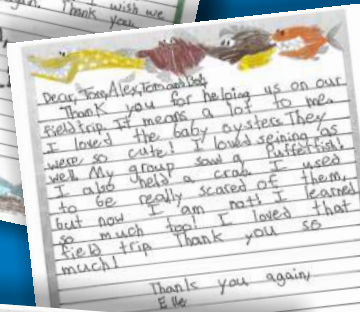 I wish we
again. Thank you
Dear, Tom, Alex, Tom and Bob,
Thank you for helping us on our
field trip. It means a lot to me.
I loved the baby oysters. They
were so cute! I loved seining as
well. My group saw a Pufferfish!
I also held a crab. I used
to be really scared of them,
but now I am not! I learned
so much too! I loved that
field trip Thank you so
much!
Thank you again,
Elle